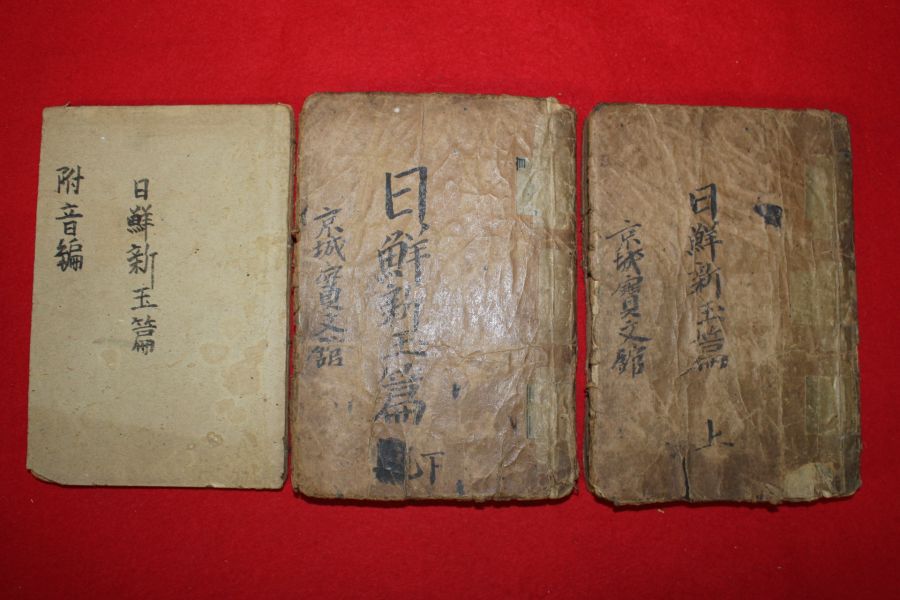 日鮮新玉篇
附音編
日鮮新玉篇
下
京城寶文館
日鮮新玉篇
上
京城寶文館